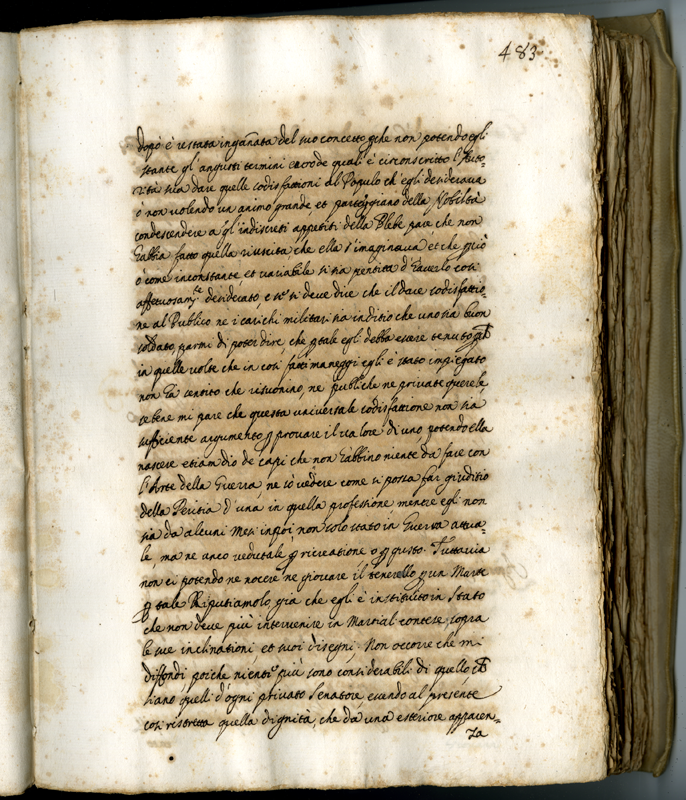 483
dopo è restata ingañata del suo concetto che non potendo egli
stante gl'angusti termini trà quali è circonscritto l'Auto=
rità sua dare quelle sodisfattioni al Populo ch'egli desiderava
ò non volendo un animo grande, et parteggiano della Nobiltà
condescendere a gl'indiscreti appetiti della Plebe pare che non
habbia fatto quella riuscita, che ella s'imaginava et che già
ò come inconstante, et variabile si sia pentita d'haverlo così
affettuosam.te desiderato, e se si deve dire che il dare sodisfattio=
ne al Publico ne i carichi militari sia inditio che uno sia buon
soldato, parmi di poter dire che p tale egli debba essere tenuto
in quelle volte che in così fatti maneggi egli è stato impiegato
non hà sentito che risuonino, ne publiche ne private querele
se bene mi pare che questa universale sodisfattione non sia
sufficiente argumento p provare il valore di uno potendo ella
nascere etiamdio de capi che non habbino niente da fare con
l'Arte della Guerra, ne sò vedere come si possa far giuditio
della Peritia d'una in quella professione mentre egli non
sia da alcuni Mesi in poi non solo stato in Guerra attua=
le, ma ne anco vedutale p ricreatione o p gusto. Tuttavia
non ci potendo ne nocere ne giovare il tenerello p un Marte
p tale Riputiamolo, gia che egli è instituito in Stato
che non deve più intervenire in Martial contese, sopra
le sue inclinationi, et suoi disegni. Non occorre che mi
diffondi poiche niente più sono considerabili di quello
siano quelli d'ogni privato Senatore, essendo al presente
così ristretta quella dignità, che da una esteriore apparen=
za